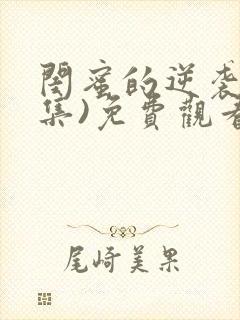 閨蜜的逆袭
集)免費觀看
尾崎美果